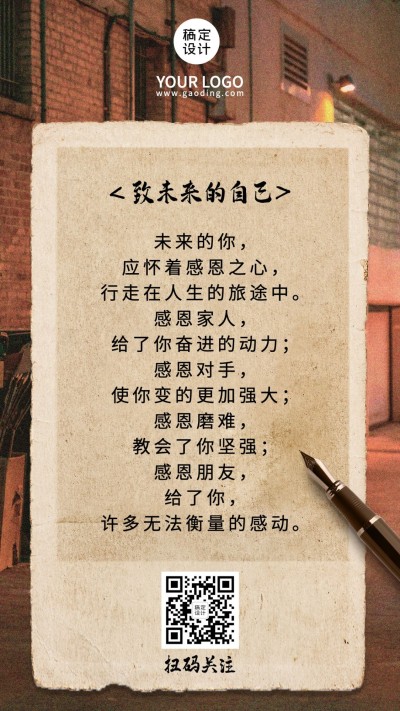 稿定
设计
YOUR LOGO
www.gaoding.com
<致未来的自己>
未来的你，
应怀着感恩之心，
行走在人生的旅途中。
感恩家人，
给了你奋进的动力；
感恩对手，
使你变的更加强大；
感恩磨难，
教会了你坚强；
感恩朋友，
给了你，
许多无法衡量的感动。
稿定
设计
扫码关注